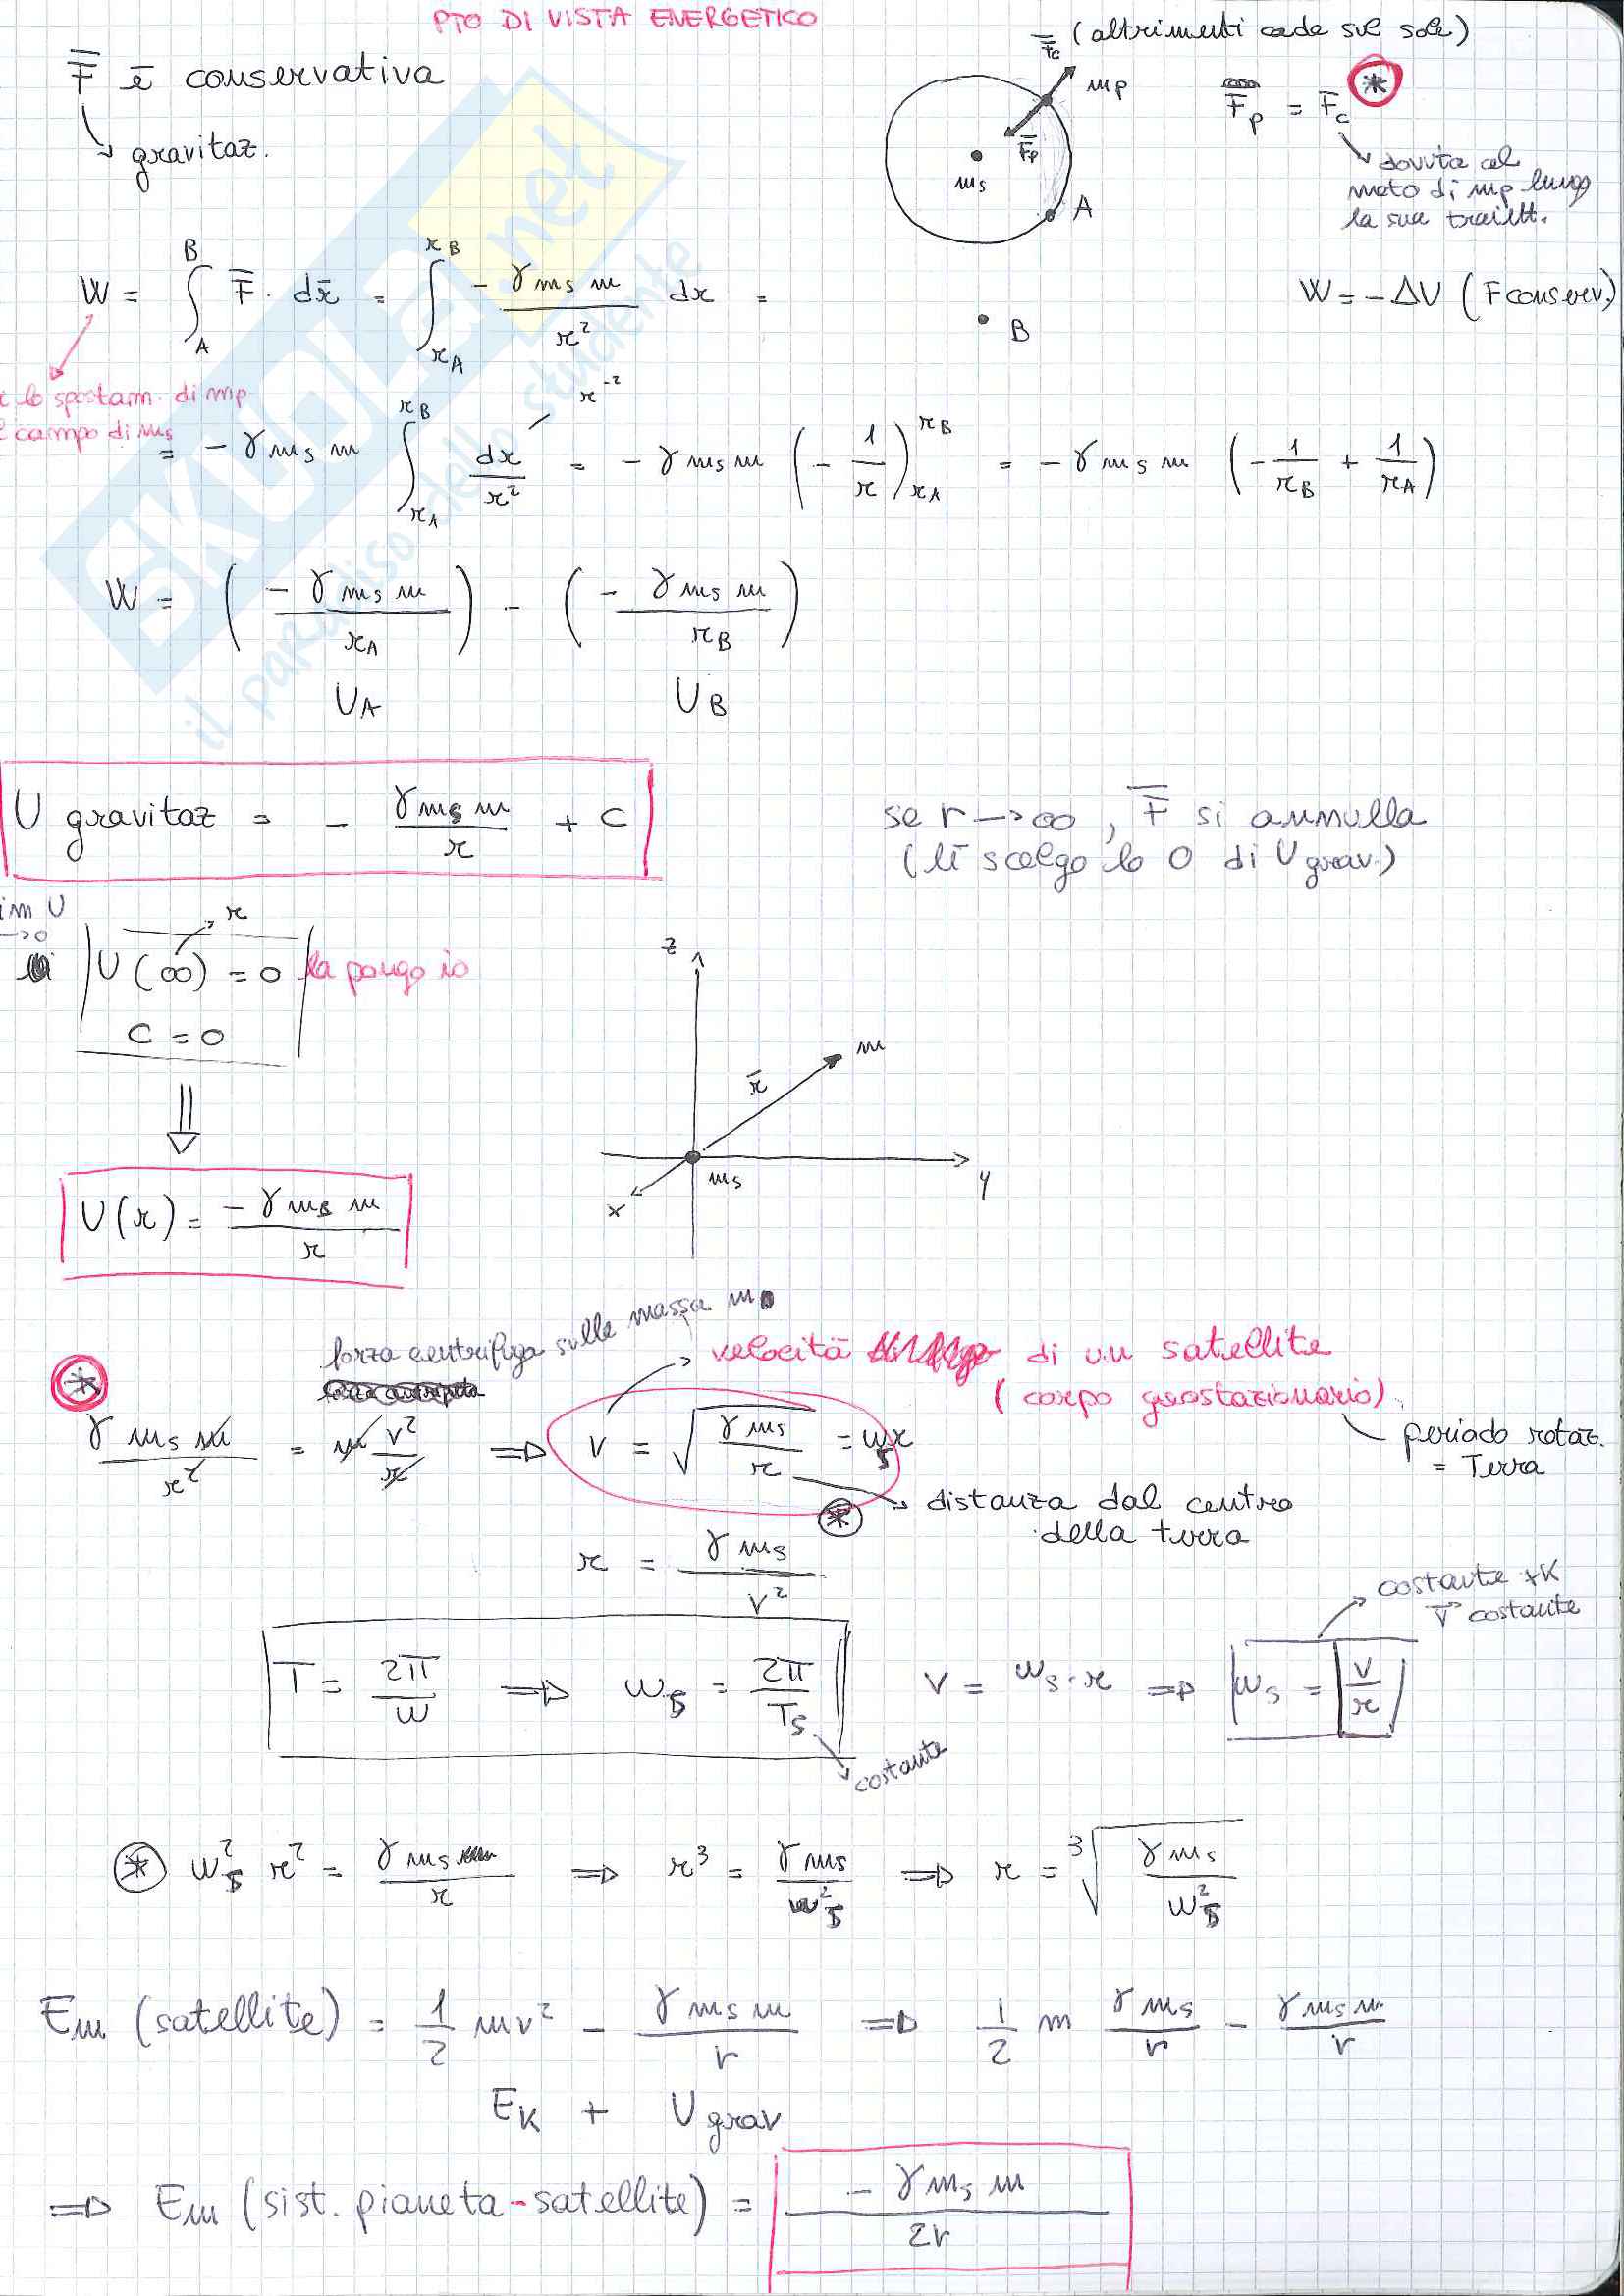 PTO DI VISTA ENERGETICO
F̅ è conservativa
gravitaz.
F̅c (altrimenti cade sul sole)
mp
F̅p
ms
A
B
F̅p = F̅c *
dovuta al
moto di mp lungo
la sua traiett.
W = ∫_A^B F̅ · dr̅ = ∫_{rA}^{rB} - γ ms m / r² dr =
W = -ΔU (F conserv.)
lo spostam. di mp
campo di ms
r⁻²
= - γ ms m ∫_{rA}^{rB} dr / r² = - γ ms m (- 1/r)_{rA}^{rB} = - γ ms m (- 1/rB + 1/rA)
W = (- γ ms m / rA) - (- γ ms m / rB)
UA UB
U gravitaz = - γ ms m / r + C
se r → ∞, F̅ si annulla
(lì scelgo lo 0 di U grav.)
im U
→0
r
U(∞) = 0 la pongo io
C = 0
⇓
z
m
r̅
ms
y
x
U(r) = - γ ms m / r
forza centrifuga sulla massa m
velocità di un satellite
(corpo geostazionario)
periodo rotaz.
= Terra
* γ ms m / r² = m v² / r ⇒ v = √(γ ms / r) = ωs r
* distanza dal centro
della terra
r = γ ms / v²
T = 2π / ω ⇒ ωs = 2π / Ts
costante
v = ωs · r ⇒ ωs = v / r
costante xK
v̅ costante
* ωs² r² = γ ms / r ⇒ r³ = γ ms / ωs² ⇒ r = ∛(γ ms / ωs²)
Em (satellite) = 1/2 mv² - γ ms m / r ⇒ 1/2 m γ ms / r - γ ms m / r
EK + U grav
⇒ Em (sist. pianeta-satellite) = - γ ms m / 2r
SKUOLA.net
il paradiso dello studente